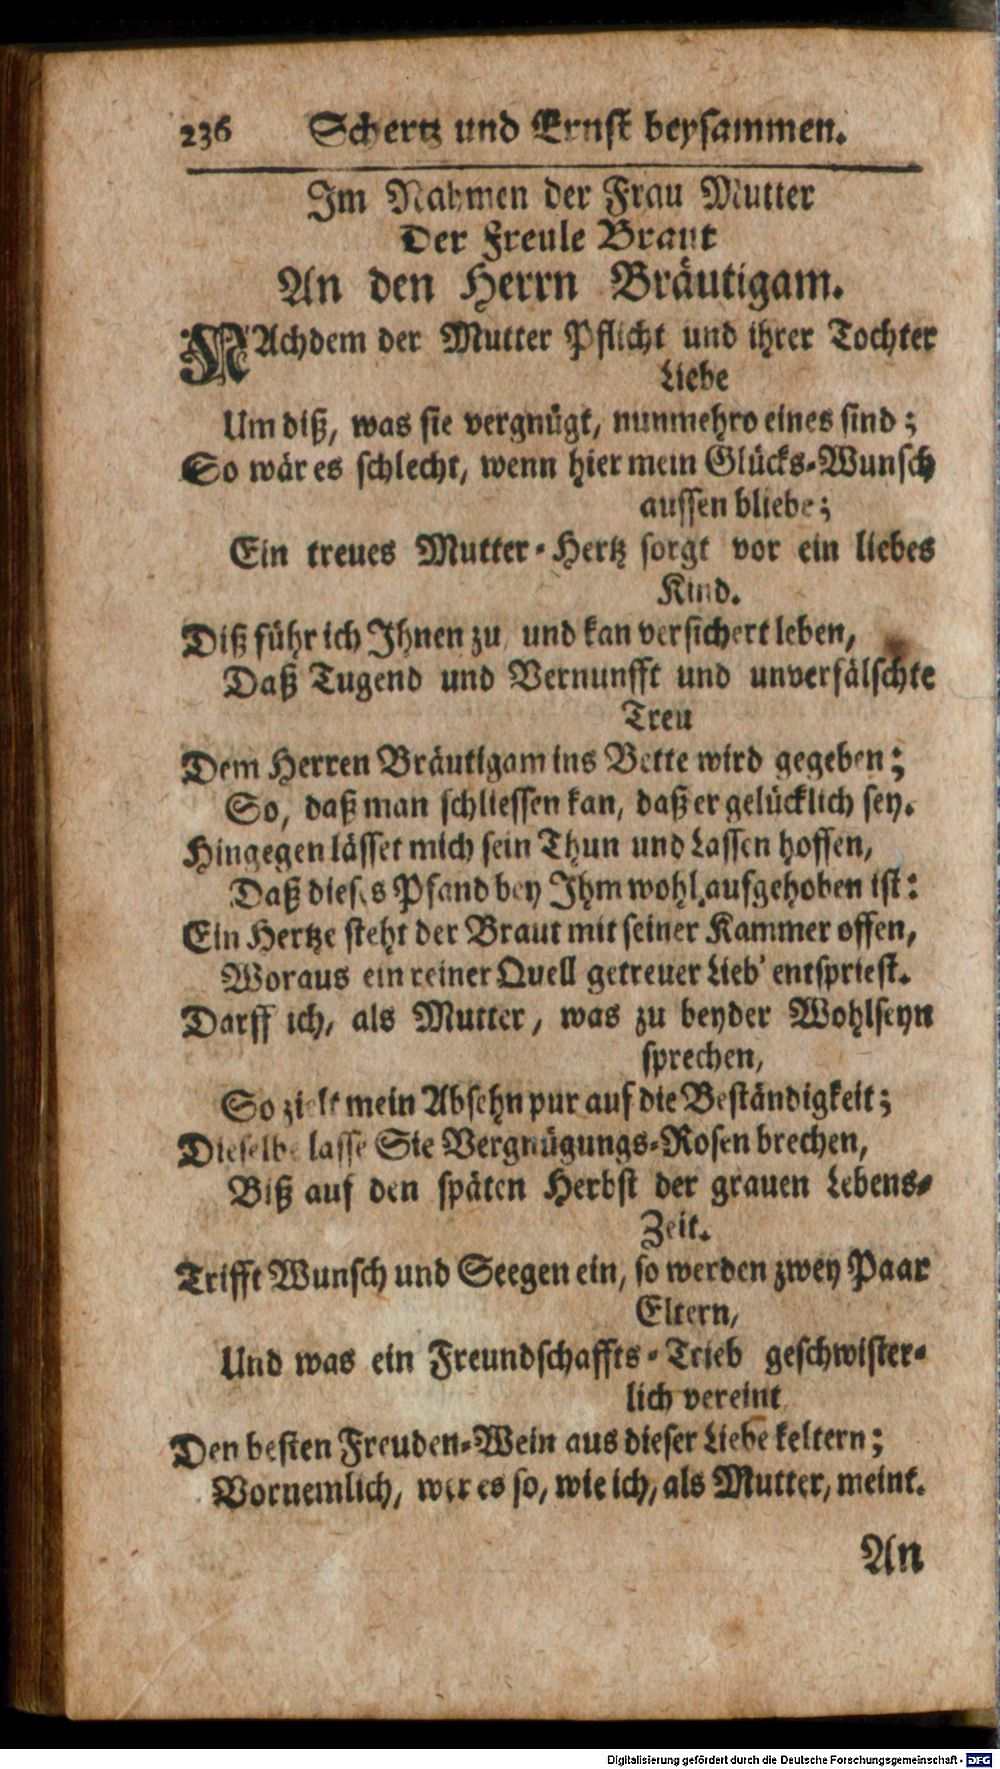 236 Schertz und Ernst beysammen.
Im Nahmen der Frau Mutter
Der Freule Braut
An den Herrn Bräutigam.
NAchdem der Mutter Pflicht und ihrer Tochter
Liebe
Um diß, was sie vergnügt, nunmehro eines sind;
So wär es schlecht, wenn hier mein Glücks-Wunsch
aussen bliebe;
Ein treues Mutter-Hertz sorgt vor ein liebes
Kind.
Diß führ ich Ihnen zu, und kan versichert leben,
Daß Tugend und Vernunfft und unverfälschte
Treu
Dem Herren Bräutigam ins Bette wird gegeben;
So, daß man schliessen kan, daß er gelücklich sey.
Hingegen lässet mich sein Thun und Lassen hoffen,
Daß dieses Pfand bey Ihm wohl aufgehoben ist:
Ein Hertze steht der Braut mit seiner Kammer offen,
Woraus ein reiner Quell getreuer Lieb' entspriest.
Darff ich, als Mutter, was zu beyder Wohlseyn
sprechen,
So zielt mein Absehn pur auf die Beständigkeit;
Dieselbe lasse Sie Vergnügungs-Rosen brechen,
Biß auf den späten Herbst der grauen Lebens-
Zeit.
Trifft Wunsch und Seegen ein, so werden zwey Paar
Eltern,
Und was ein Freundschaffts-Trieb geschwister-
lich vereint
Den besten Freuden-Wein aus dieser Liebe keltern;
Vornemlich, wer es so, wie ich, als Mutter, meint.
An
Digitalisierung gefördert durch die Deutsche Forschungsgemeinschaft - DFG